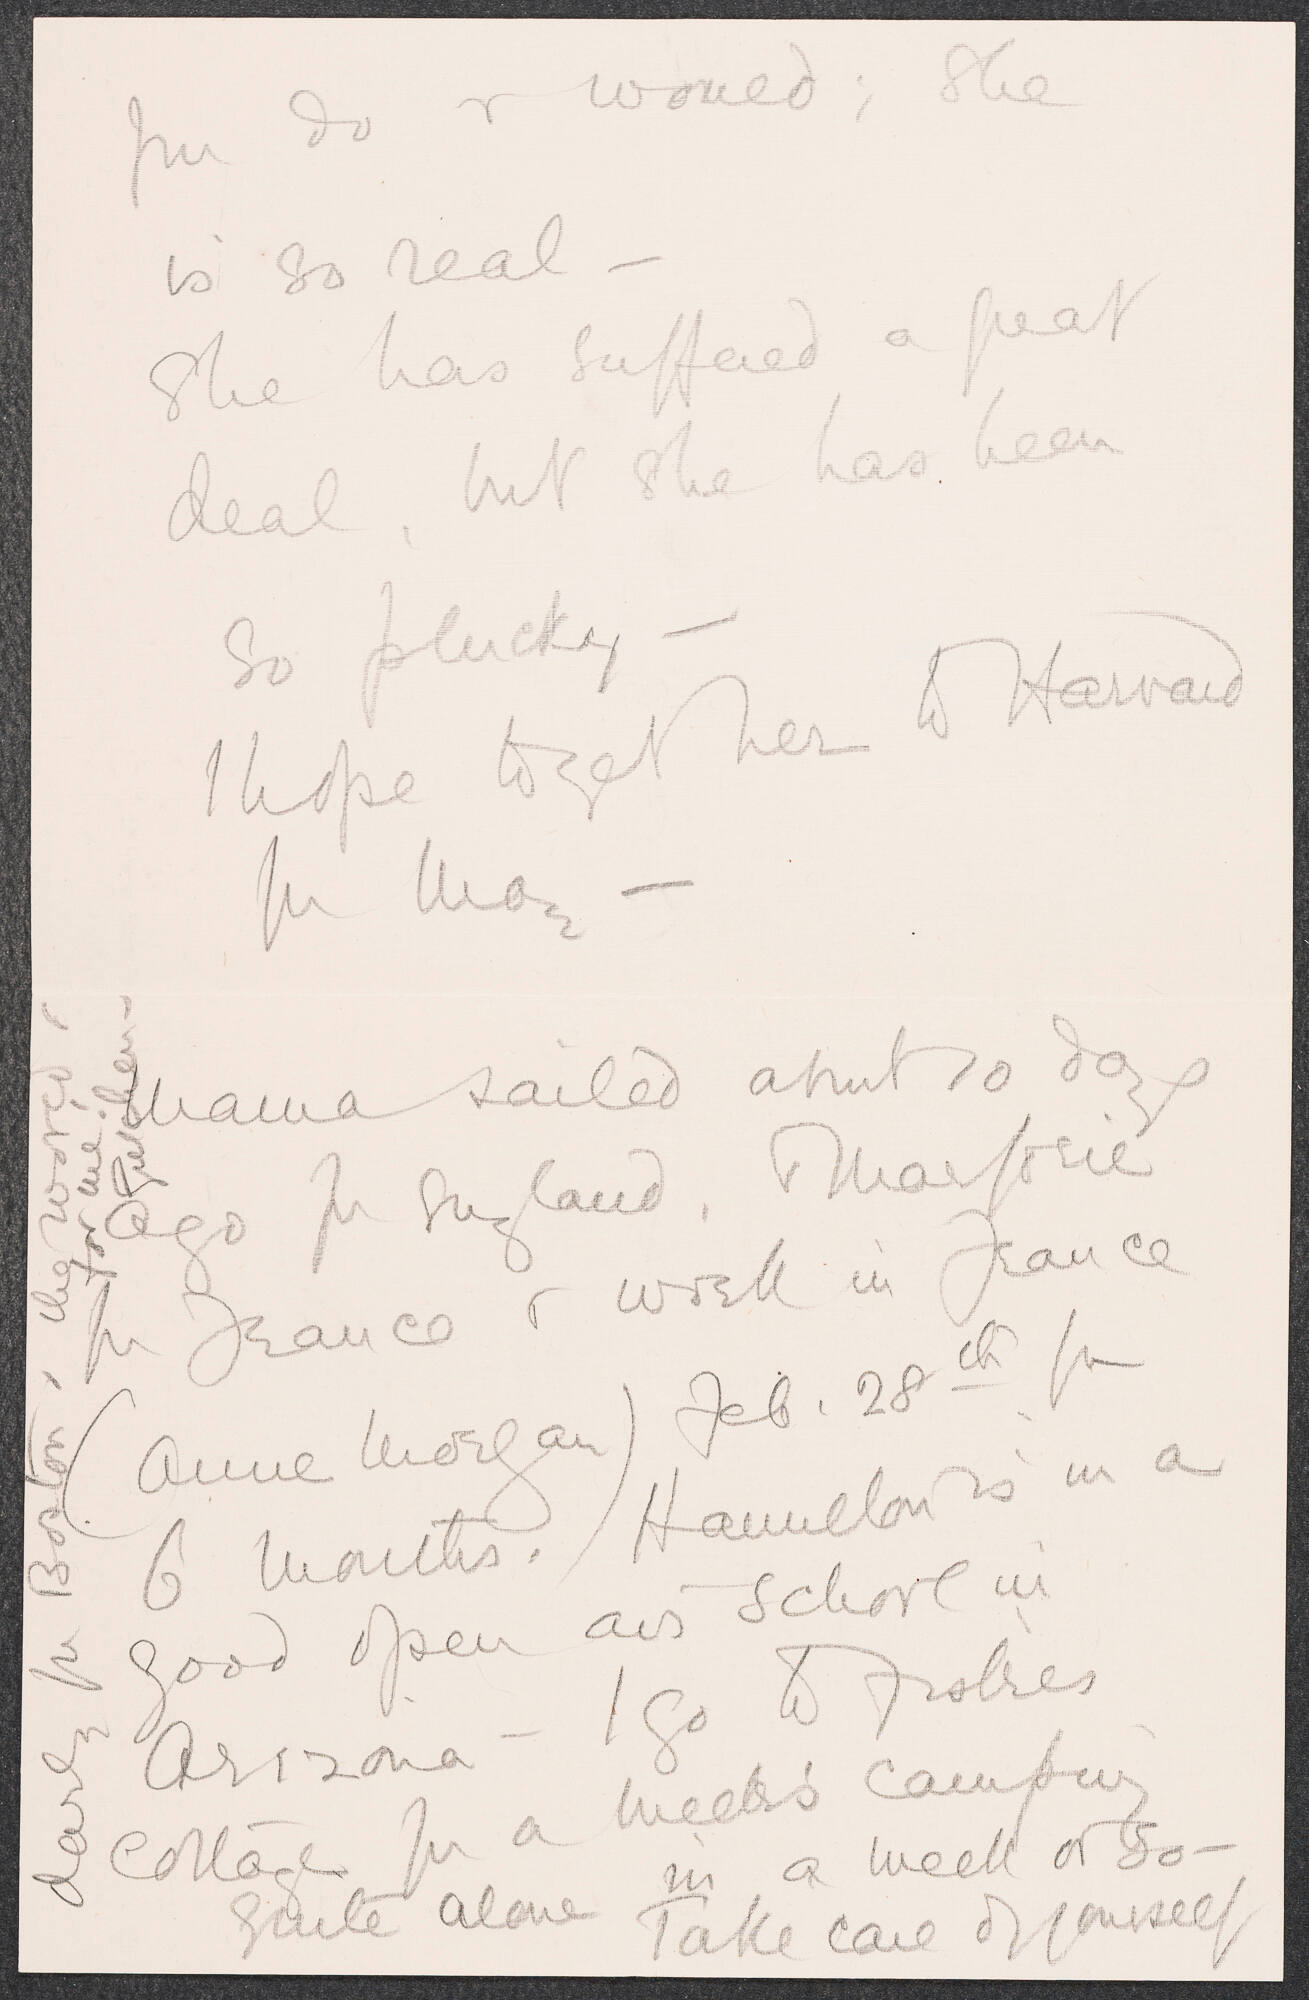 you do & would; She
is so real –
She has suffered a great
deal, but she has been
so plucky –
I hope to get her to Harvard
for May –
Mama sailed about 10 days
ago for England, & Marjorie
for France & work in France
(Anne Morgan) Feb. 28th for
6 months. Hamilton is in a
good open air school in
Arizona – I go to
cottage for a week's camping
quite alone in a week or so –
Take care of yourself
dearly for Boston, the world,
for me!